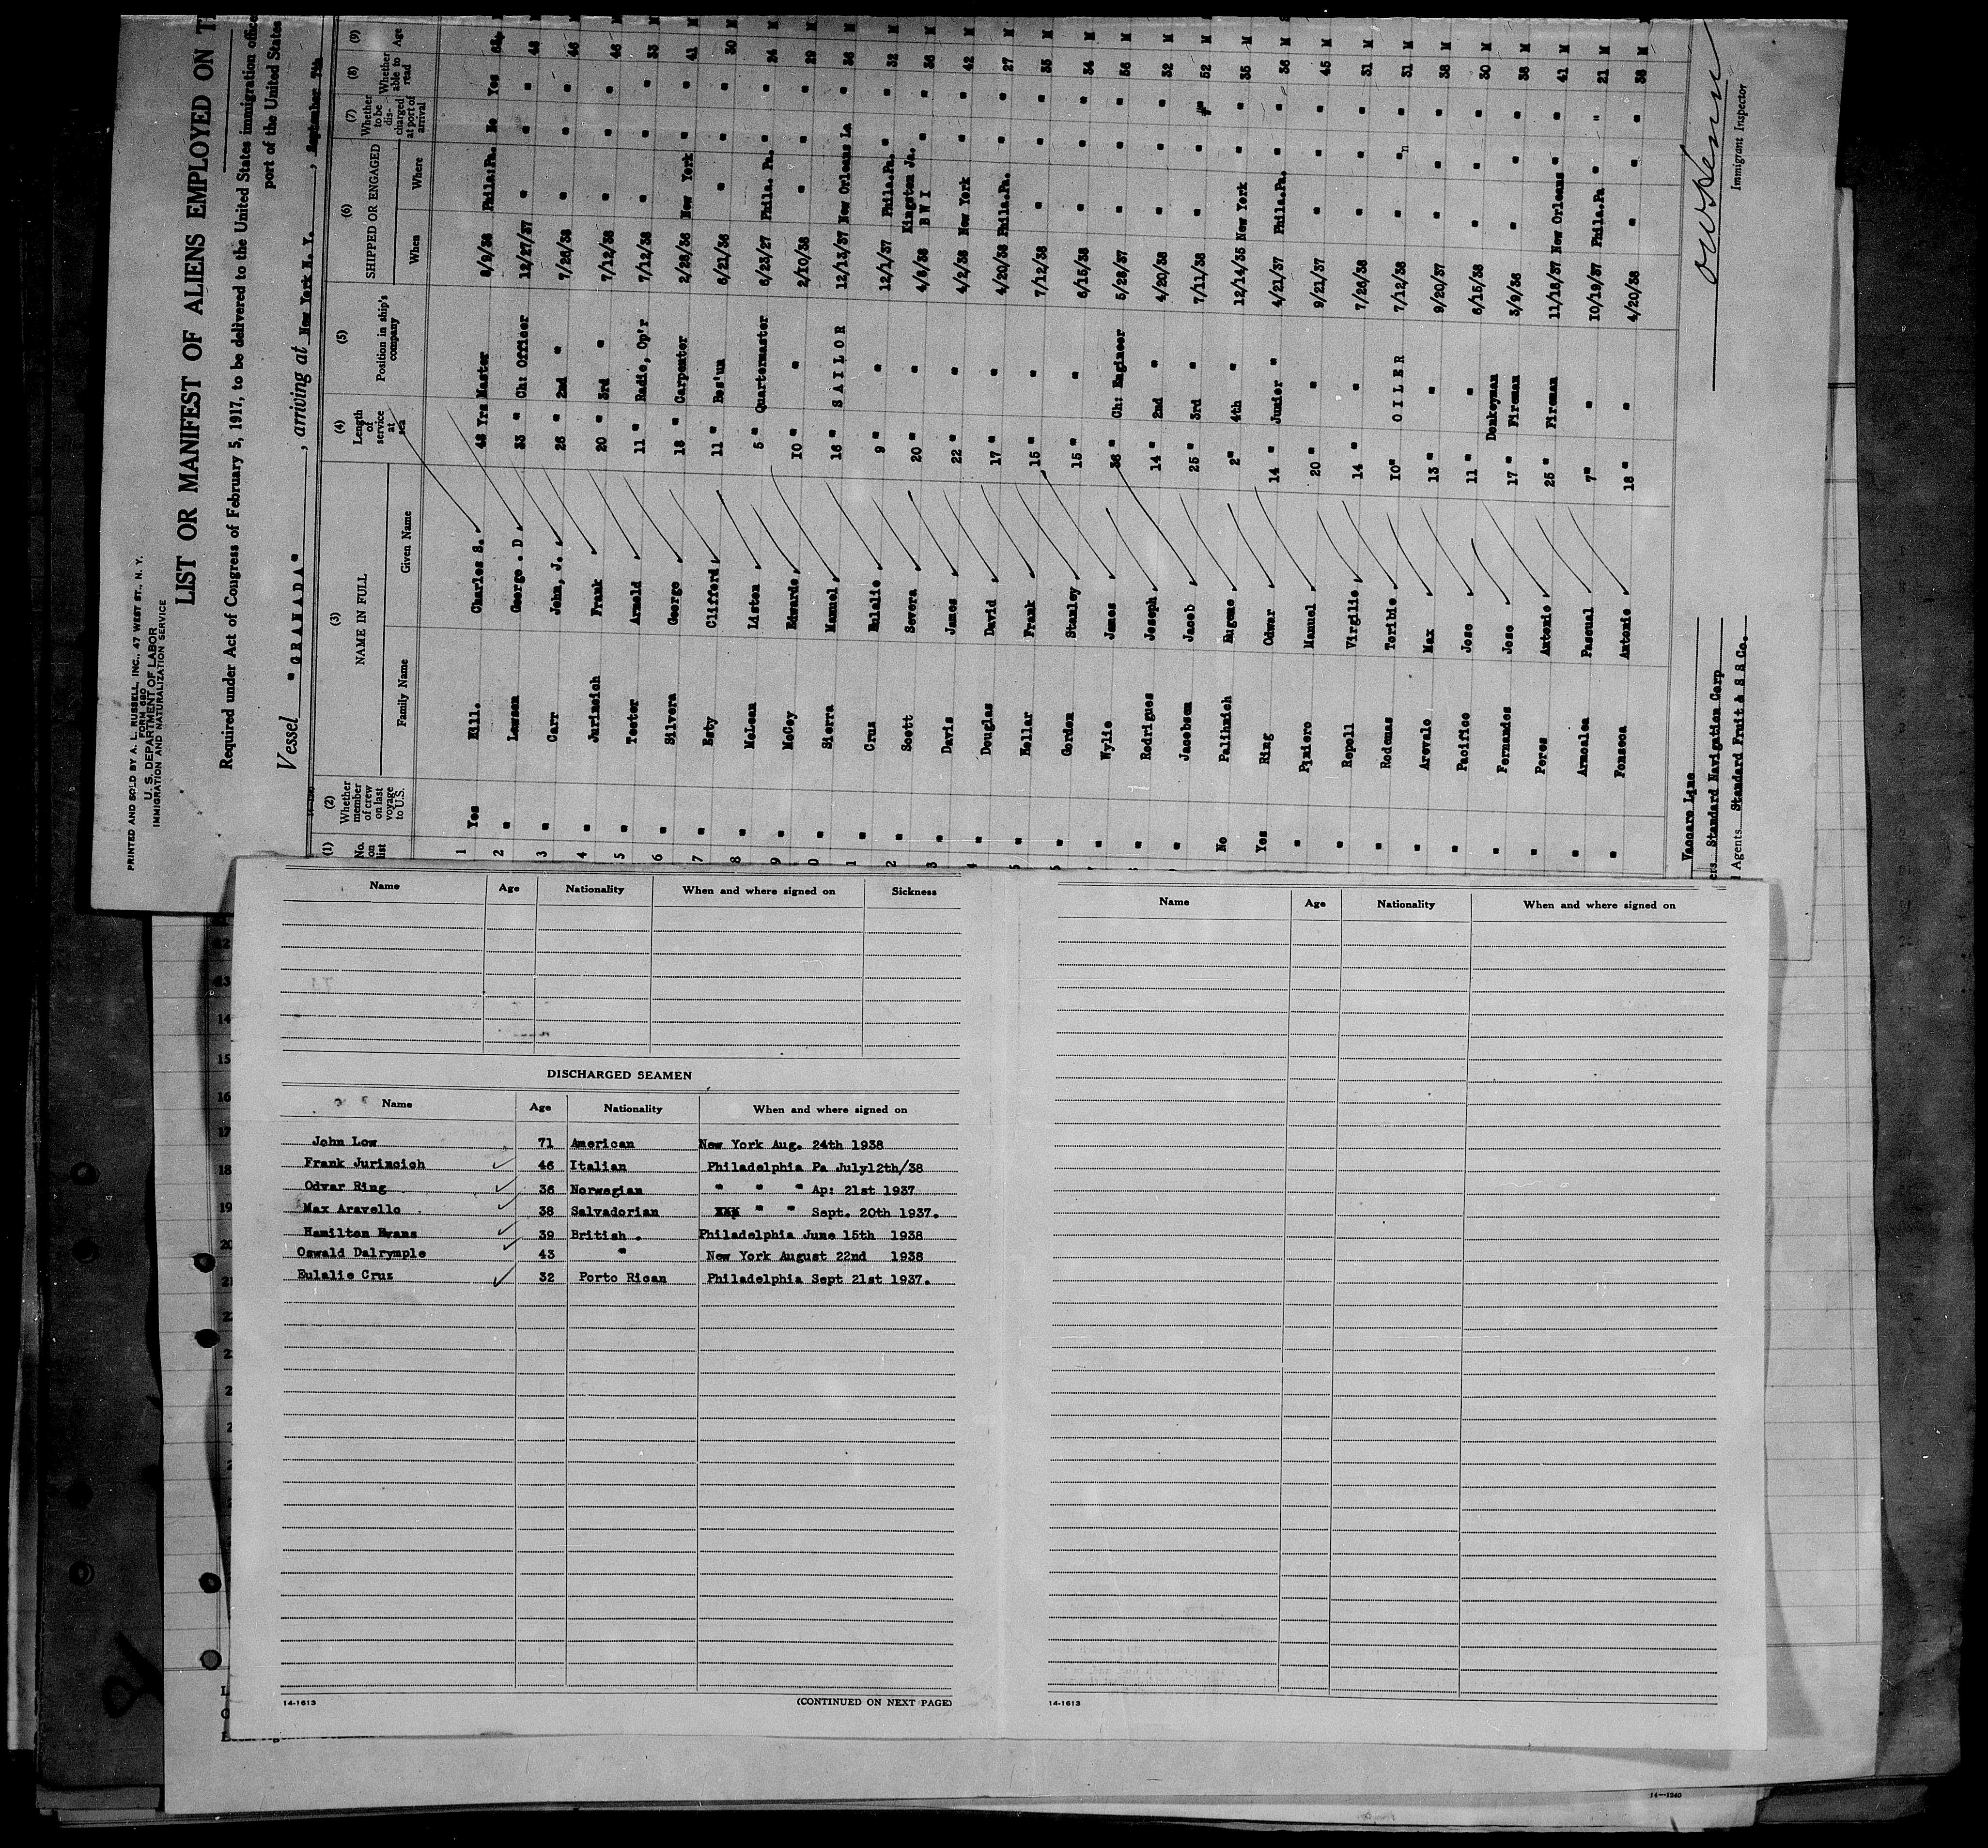 PRINTED AND SOLD BY A. L. RUSSELL, INC., 47 WEST ST., N. Y.
FORM 680
U. S. DEPARTMENT OF LABOR
IMMIGRATION AND NATURALIZATION SERVICE
LIST OR MANIFEST OF ALIENS EMPLOYED ON
Required under Act of Congress of February 5, 1917, to be delivered to the United States immigration
port of the United States
Vessel "GRANADA", arriving at New York N. Y., September 7th
(1) (2) (3) (4) (5) (6) (7) (8) (9)
No. on list Whether member of crew on last voyage to U.S. NAME IN FULL Family Name Given Name Length of service at sea Position in ship's company SHIPPED OR ENGAGED When Where Whether to be discharged at port of arrival Whether able to read Age
1 Yes Charles S. 48 Yrs Master 8/9/38 Phila:Pa. No Yes M
2 " Lawson George . D 33 " Ch: Officer 12/27/37 " " " 48 M
3 " Carr John, J. 26 " 2nd " 7/26/38 " " " 46 M
4 " Jurincich Frank 20 " 3rd " 7/12/38 " " " 46 M
5 " Teeter Arnold 11 " Radio, Op'r 7/12/38 " " " 33 M
6 " Silvera George 18 " Carpenter 2/28/36 New York " " 41 M
7 " Esty Clifford 11 " Bos'un 6/21/36 " " " 30 M
8 " McLean Liston 5 " Quartermaster 6/23/27 Phila. Pa. " " 24 M
9 " McCoy Edwardo 10 " " 2/10/38 " " " 29 M
0 " Sierra Manuel 16 " SAILOR 12/13/37 New Orleans La " 36 M
1 " Cruz Eulalie 9 " " 12/1/37 Phila.Pa. " " 32 M
2 " Scott Severa 20 " " 4/8/38 Kingston Ja. BWI " " 36 M
3 " Davis James 22 " " 4/2/38 New York " " 42 M
4 " Douglas David 17 " " 4/20/38 Phila.Pa. " " 27 M
5 " Kellar Frank 15 " " 7/12/38 " " " 35 M
" Gordon Stanley 15 " " 6/15/38 " " " 34 M
" Wylie James 36 " Ch: Engineer 5/28/37 " " " 56 M
" Rodrigues Joseph 14 " 2nd " 4/20/38 " " " 32 M
" Jacobsen Jacob 25 " 3rd " 7/11/38 " " " 52 M
No Palihnich Eugene 2" 4th " 12/14/35 New York " " 35 M
Yes Ring Odvar 14 " Junior " 4/21/37 Phila.Pa. " " 36 M
" Piniero Manuel 20 " " 9/21/37 " " " 45 M
" Repoll Virgilio 14 " " 7/26/38 " " " 31 M
" Rodenas Toribio 10" OILER 7/12/38 " " " 31 M
" Arevalo Max 13 " " 9/20/37 " " " 38 M
" Pacifico Jose 11 " " 6/15/38 " " " 30 M
" Fernandes Jose 17 " Donkeyman Fireman 3/9/36 " " " 36 M
" Peres Antonio 25 " Fireman 11/18/37 New Orleans " " 41 M
" Pascual 7" " 10/19/37 Phila.Pa " " 21 M
" Fonseca Antonio 18" " 4/20/38 " " " 38 M
Vaccaro Line
Standard Navigation Corp
Agents Standard Fruit & S S Co.
Immigrant Inspector
Name Age Nationality When and where signed on Sickness
Name Age Nationality When and where signed on
DISCHARGED SEAMEN
Name Age Nationality When and where signed on
John Low 71 American New York Aug. 24th 1938
Frank Jurincich 46 Italian Philadelphia Pa July12th/38
Odvar Ring 36 Norwegian " " " Ap: 21st 1937
Max Aravello 38 Salvadorian XXX " " Sept. 20th 1937.
Hamilton Evans 39 British . Philadelphia June 15th 1938
Oswald Dalrymple 43 " New York August 22nd 1938
Eulalie Cruz 32 Porto Rican Philadelphia Sept 21st 1937.
14-1613 (CONTINUED ON NEXT PAGE)
14-1613
12
13
14
15
16
17
18
19
20
21
14-1240